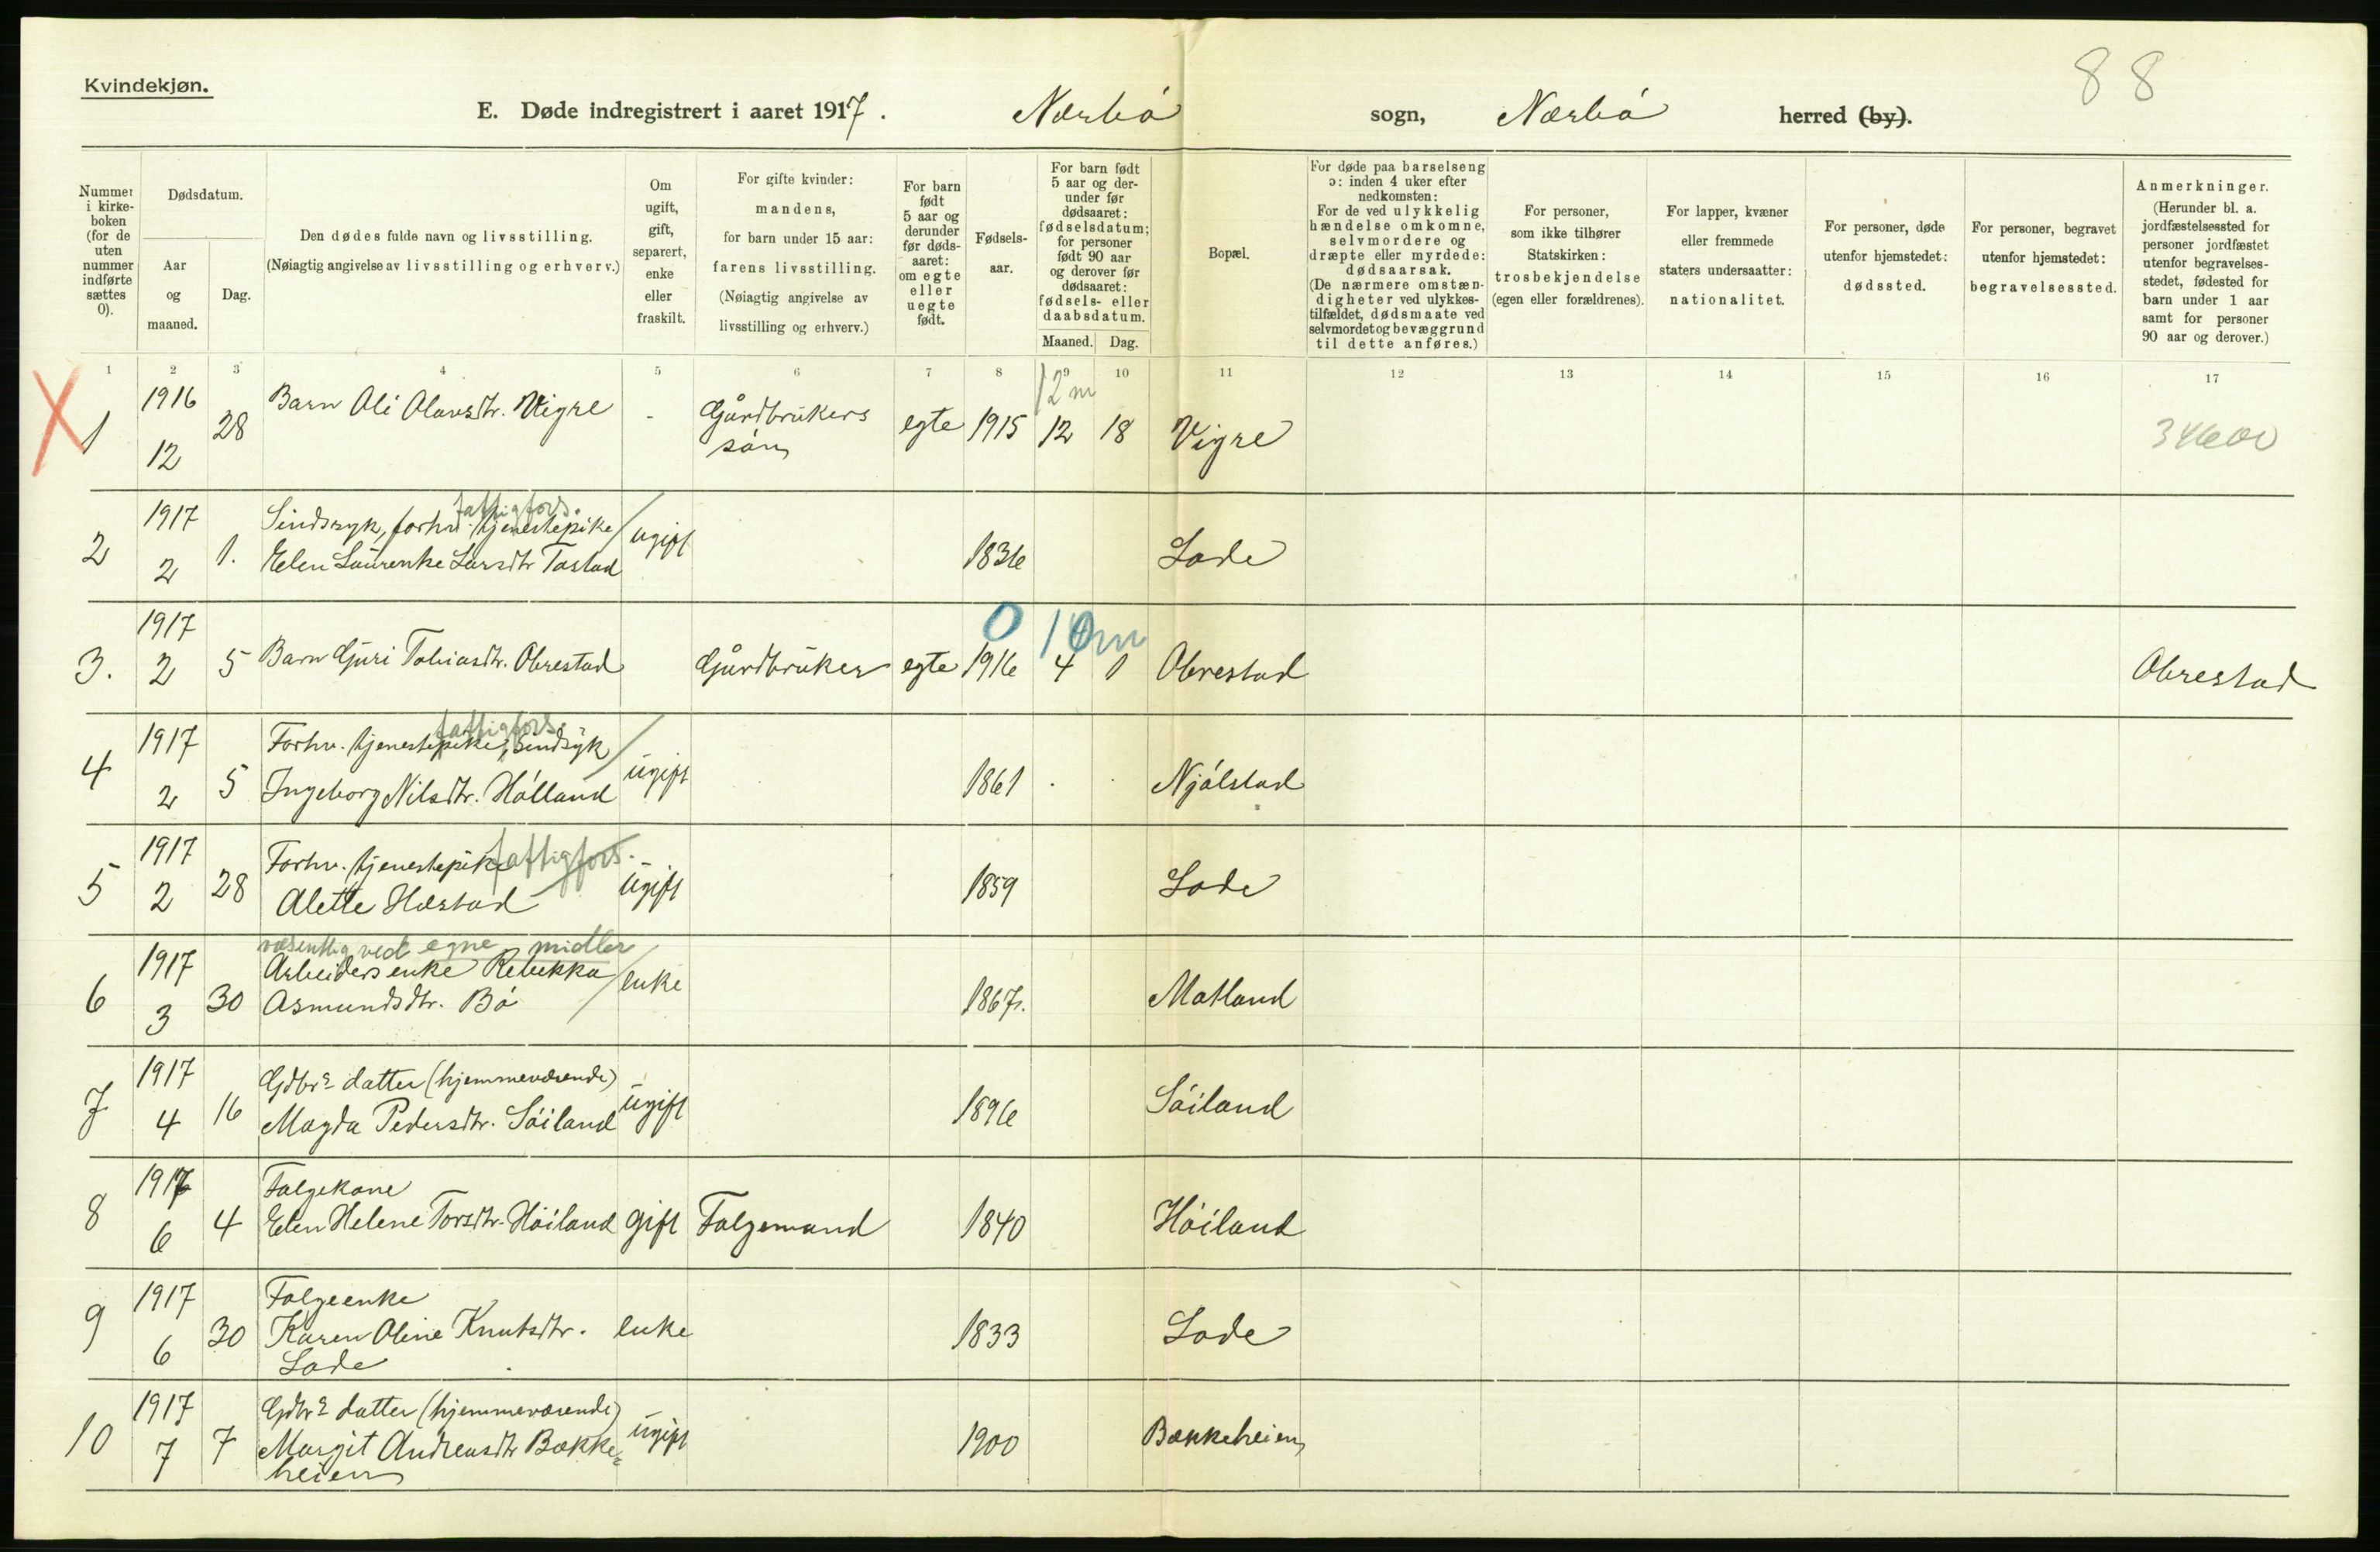 88
Kvindekjøn.
E. Døde indregistrert i aaret 1917. Nærbö sogn, Nærbö herred (by).
Nummer i kirke-boken (for de uten nummer indførte sættes 0).
Dødsdatum.
Aar og maaned.
Dag.
Den dødes fulde navn og livsstilling.
(Nøiagtig angivelse av livsstilling og erhverv.)
Om ugift, gift, separert, enke eller fraskilt.
For gifte kvinder: mandens, for barn under 15 aar: farens livsstilling. (Nøiagtig angivelse av livsstilling og erhverv.)
For barn født 5 aar og derunder før døds-aaret: om egte eller uegte født.
Fødsels-aar.
For barn født 5 aar og der-under før dødsaaret: fødselsdatum; for personer født 90 aar og derover før dødsaaret: fødsels- eller daabsdatum.
Maaned. Dag.
Bopæl.
For døde paa barselseng ɔ: inden 4 uker efter nedkomsten: For de ved ulykkelig hændelse omkomne, selvmordere og dræpte eller myrdede: dødsaarsak. (De nærmere omstæn-digheter ved ulykkes-tilfældet, dødsmaate ved selvmordet og bevæggrund til dette anføres.)
For personer, som ikke tilhører Statskirken: trosbekjendelse (egen eller forældrenes).
For lapper, kvæner eller fremmede staters undersaatter: nationalitet.
For personer, døde utenfor hjemstedet: dødssted.
For personer, begravet utenfor hjemstedet: begravelsessted.
Anmerkninger. (Herunder bl. a. jordfæstelsessted for personer jordfæstet utenfor begravelses-stedet, fødested for barn under 1 aar samt for personer 90 aar og derover.)
1 2 3 4 5 6 7 8 9 10 11 12 13 14 15 16 17
12 m
X 1 1916 12 28 Barn Ali Olavsdtr. Vigre - Gårdbrukers sön egte 1915 12 18 Vigre 34600
fattigfors.
2 1917 2 1. Sindssyk, forhv. tjenestepike
Elen Laurenke Larsdtr Tastad ugift 1836 Lode
0 10m
3. 1917 2 5 Barn Guri Tobiasdtr. Obrestad Gårdbruker egte 1916 4 1 Obrestad Obrestad
fattigfors.
4 1917 2 5 Forhv. tjenestepike, sindsyk
Ingeborg Nilsdtr. Hólland ugift 1861 Njólstad
fattigfors.
5 1917 2 28 Forhv. tjenestepike
Alette Hæstad ugift 1859 Lode
væsentlig ved egne midler
6 1917 3 30 Arbeidersenke Rebekka
Asmundsdtr. Bö enke 1867. Motland
7 1917 4 16 Gdbrs datter (hjemmeværende)
Magda Pedersdtr. Söiland ugift 1896 Söiland
8 1917 6 4 Folgekone
Elen Helene Torsdtr. Höiland gift Folgemand 1840 Höiland
9 1917 6 30 Folgeenke
Karen Oline Knutsdtr.
Lode enke 1833 Lode
10 1917 7 7 Gdbrs datter (hjemmeværende)
Margit Andreasdtr Bække=
heien ugift 1900 Bækkeheien